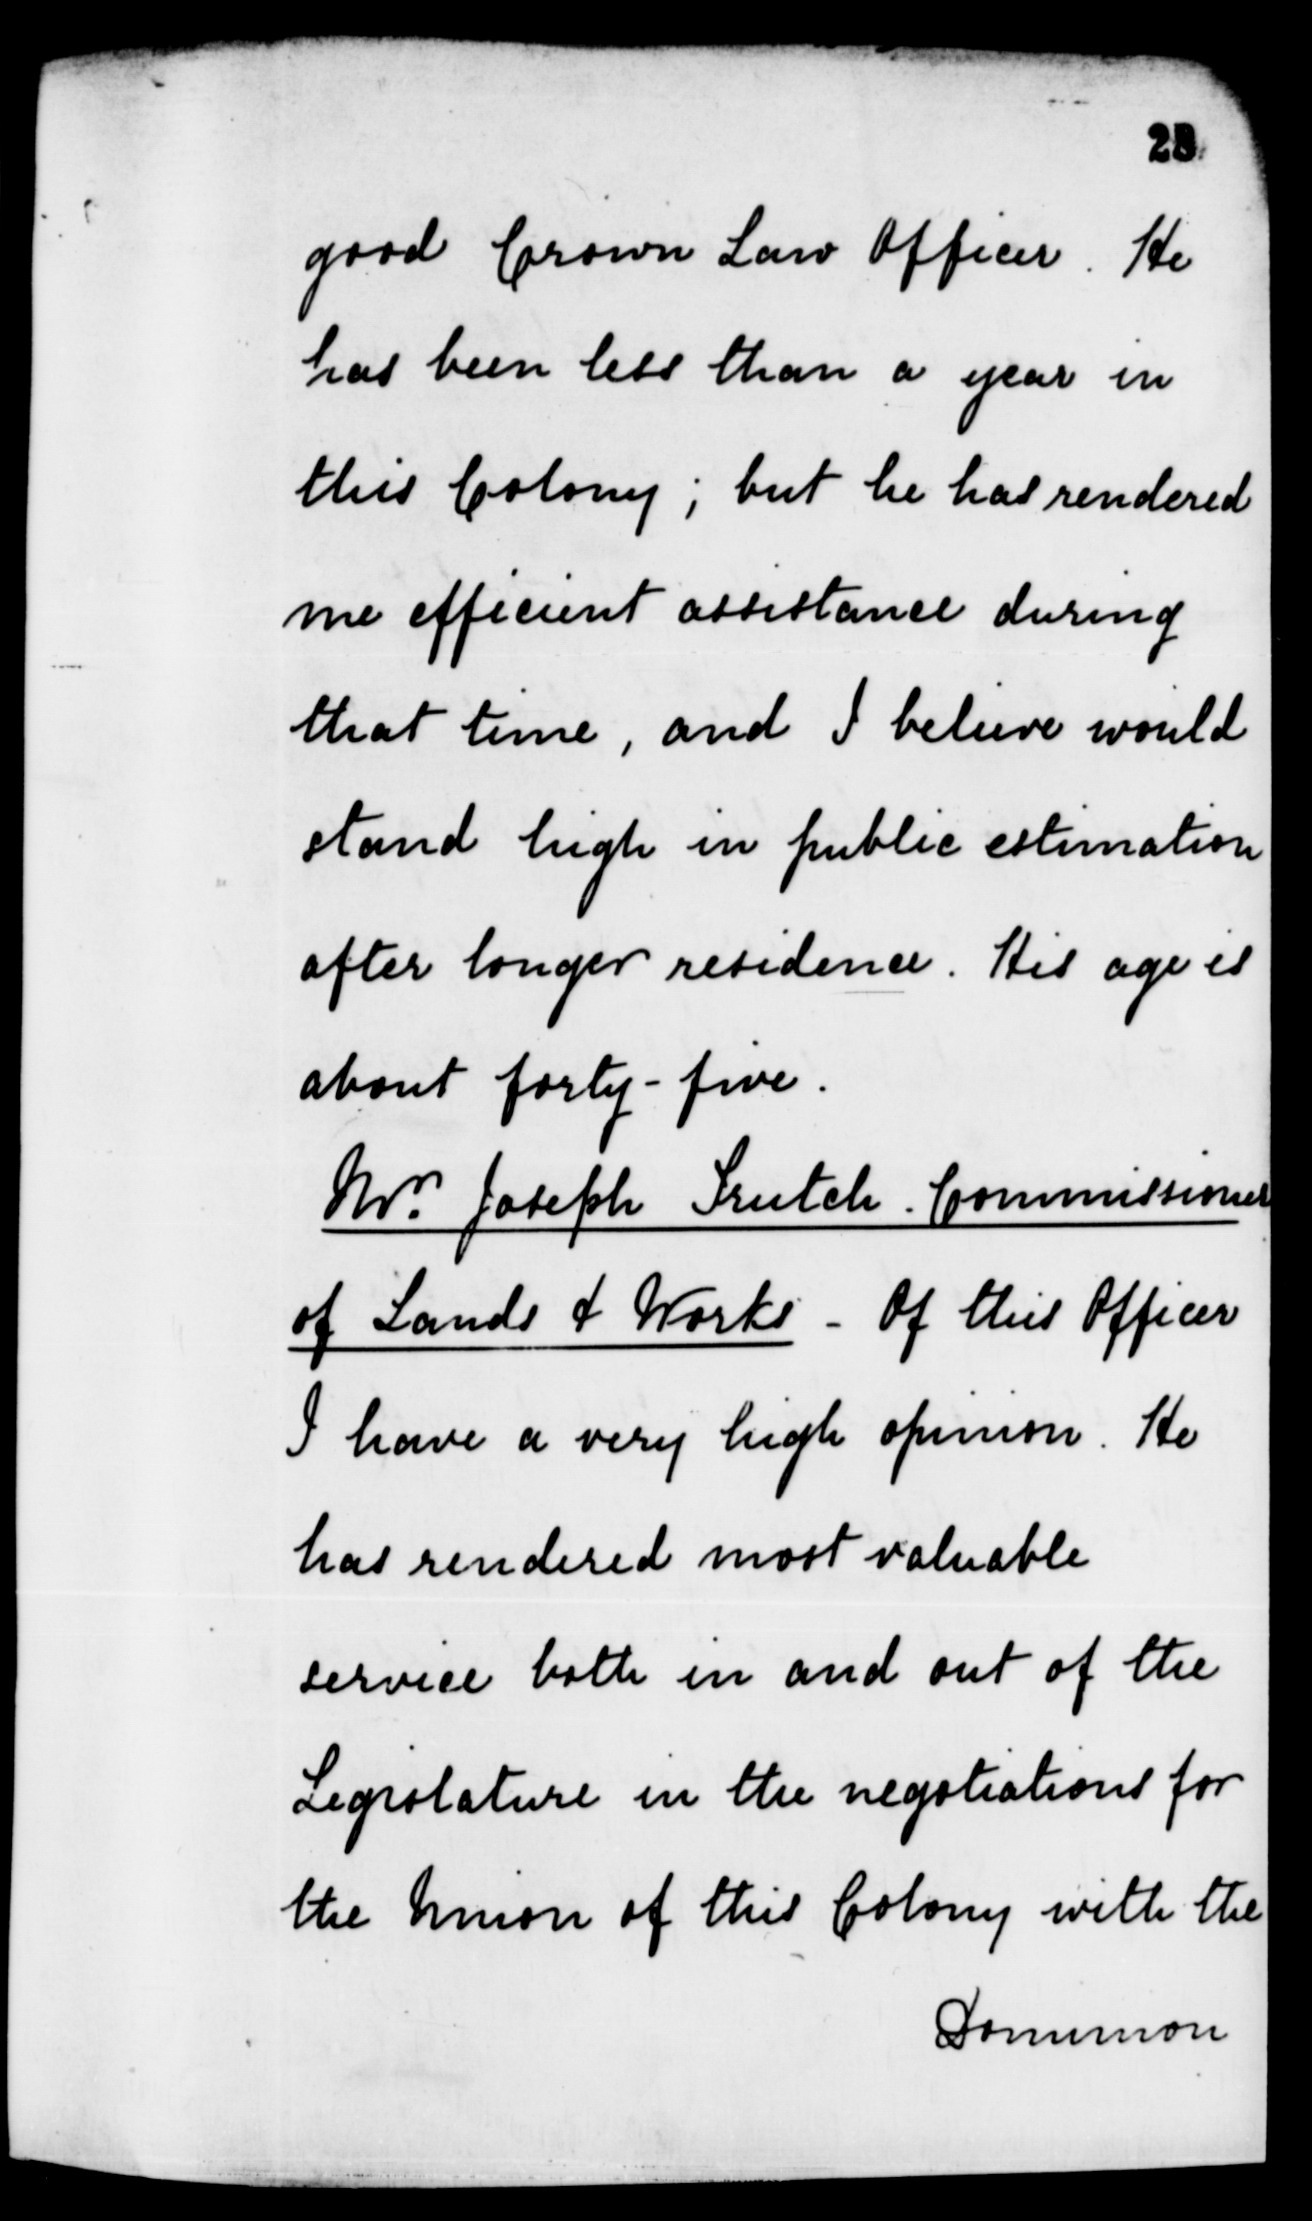 28
good Crown Law Officer. He
has been less than a year in
this Colony; but he has rendered
me efficient assistance during
that time, and I believe would
stand high in public estimation
after longer residence. His age is
about forty-five.
Mr. Joseph Trutch. Commissioner
of Lands & Works - Of this Officer
I have a very high opinion. He
has rendered most valuable
service both in and out of the
Legislature in the negotiations for
the Union of this Colony with the
Dominion